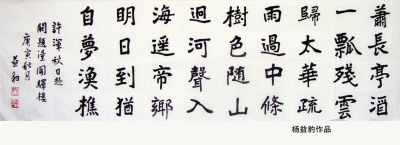 蕭長亭酒
一瓢殘雲
歸太華疏
雨過中條
樹色隨山
迥河聲入
海遥帝鄉
明日到猶
自夢漁樵
許渾秋日赴
闕題潼關驛樓
庚寅秋月
益豹
杨益豹作品